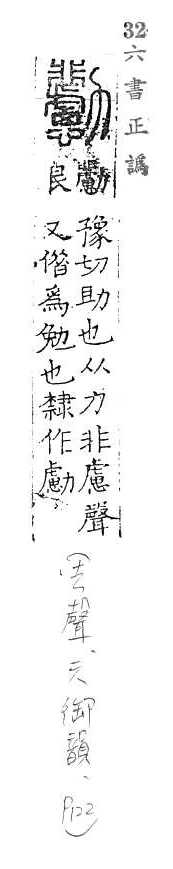 32 六書正譌
良
豫切助也从力非慮聲
又偕爲勉也隸作勴
(去聲、御韻、P122)